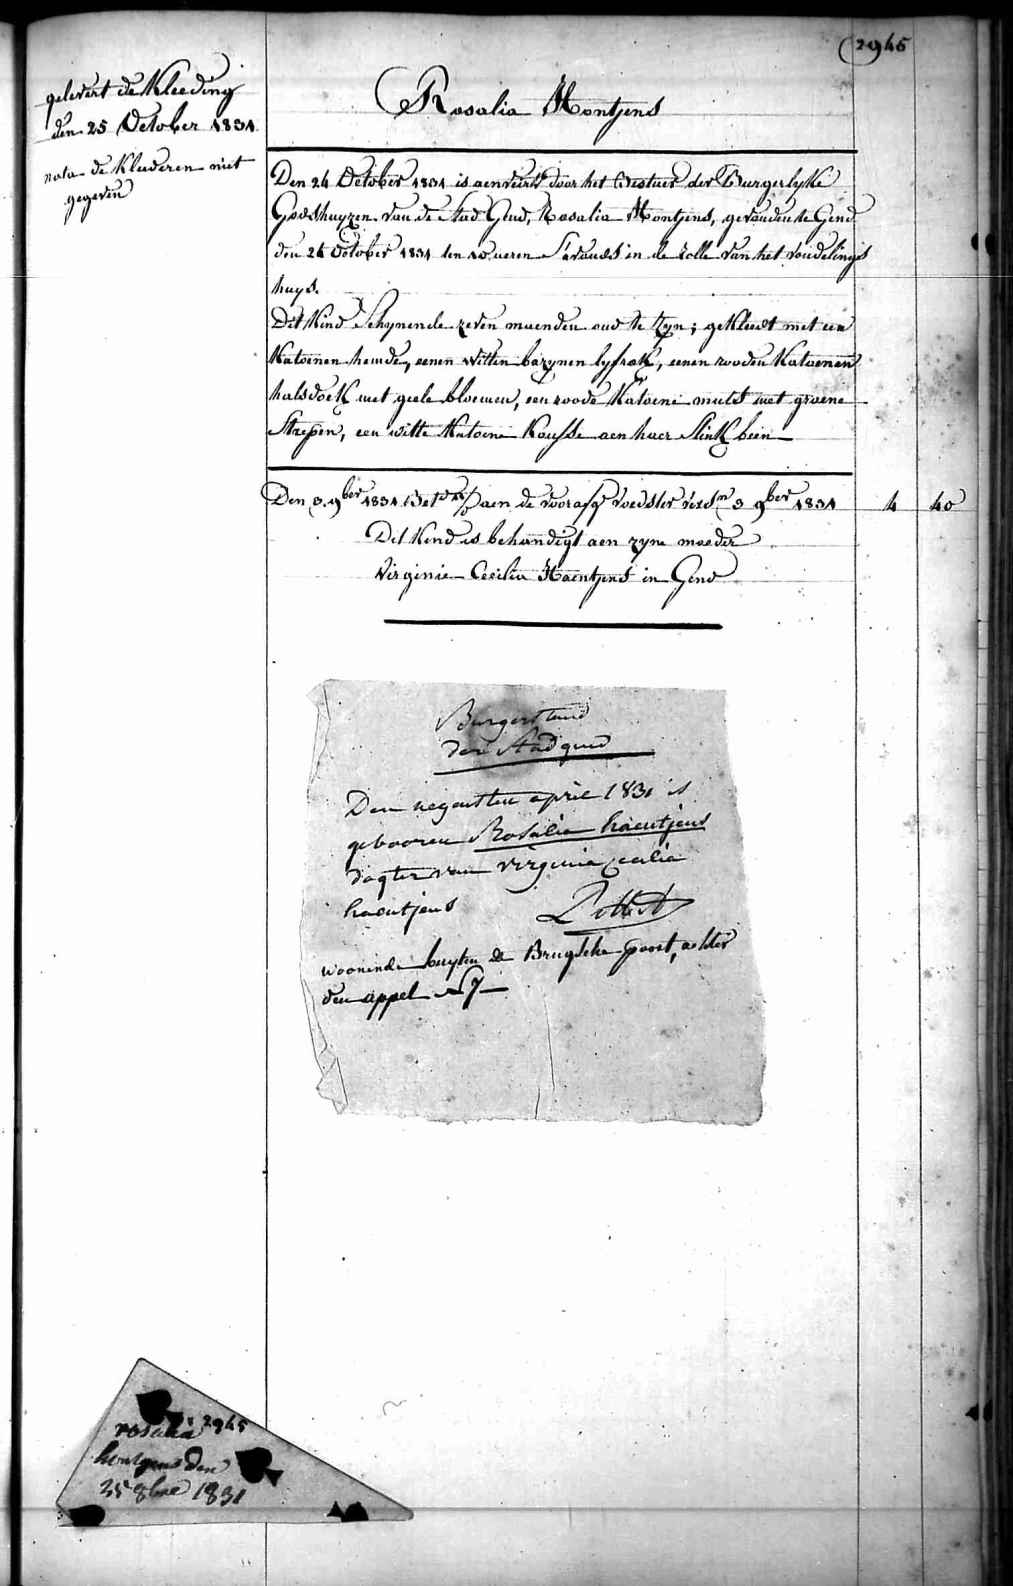 2945
gelevert de Kleeding
den 25 October 1831
nota de Kleederen niet
gegeven
Rosalia Hontjens
Den 24 October 1831 is aenveird door het Bestuer der Burgerlyke
Godshuyzen van de Stad Gend, Rosalia Hontjens, gevonden te Gend
den 24 October 1831 ten 10 ueren S'avonds in de rolle van het vondelings
huys.
Dit Kind Schynende zeven maenden oud te Zyn; gekleedt met een
Katoenen hemde, eenen witten bazynen lyfrok, eenen rooden Katoenen
halsdoek met geele bloemen, een roode Katoene muts met groene
Strepen, een witte Katoene Kousse aen haer Slink been
Den 3 9ber 1831 aen de voedster 3 9ber 1831 4 40
Dit Kind is behandigt aen zyne moeder
Virginie Cecilia Haentjens in Gend
Burgerstand
der Stad gend
Den negensten april 1831 is
gebooren Rosalia haentjens
dogter van virginia Cecilia
haentjens
woonende buyten de Brugsche poort, achter
den appel N 7
rosalia 2945
hontjens den
25 8bre 1831